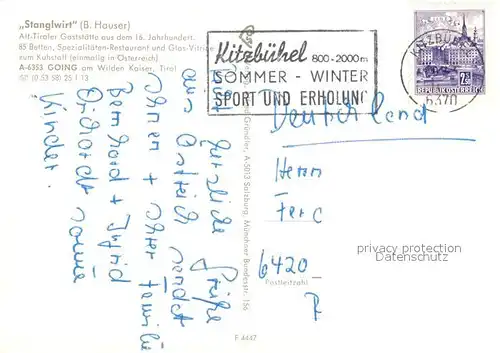 „Stanglwirt" (B. Hauser)
Alt-Tiroler Gaststätte aus dem 16. Jahrhundert.
85 Betten, Spezialitäten-Restaurant und Glas-Vitrine
zum Kuhstall (einmalig in Österreich)
A-6353 GOING am Wilden Kaiser, Tirol
(0 53 58) 25 1 13
Kitzbühel 800-2000m
SOMMER - WINTER
SPORT UND ERHOLUNG
KITZBÜHEL
6370
REPUBLIK ÖSTERREICH
Herzliche Grüße
aus sendet
Ihnen + Ihrer Familie
Bernhard + Ingrid
sowie
Kinder.
Gründler, A-5013 Salzburg, Münchner Bundesstr. 156
Deutschland
Herrn
Ferc
6420
Postleitzahl
privacy protection
Datenschutz
F 4447